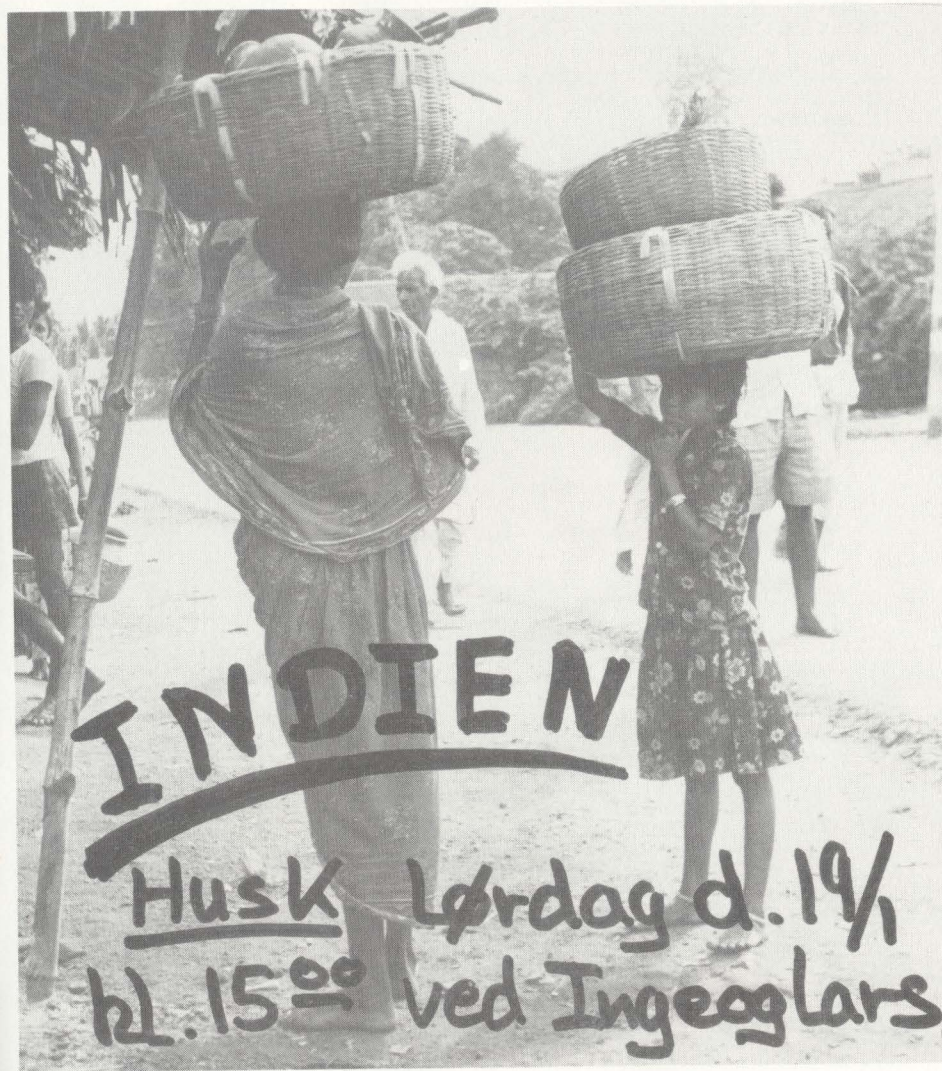 INDIEN
Husk Lørdag d. 19/1
kl. 15⁰⁰ ved Inge og Lars